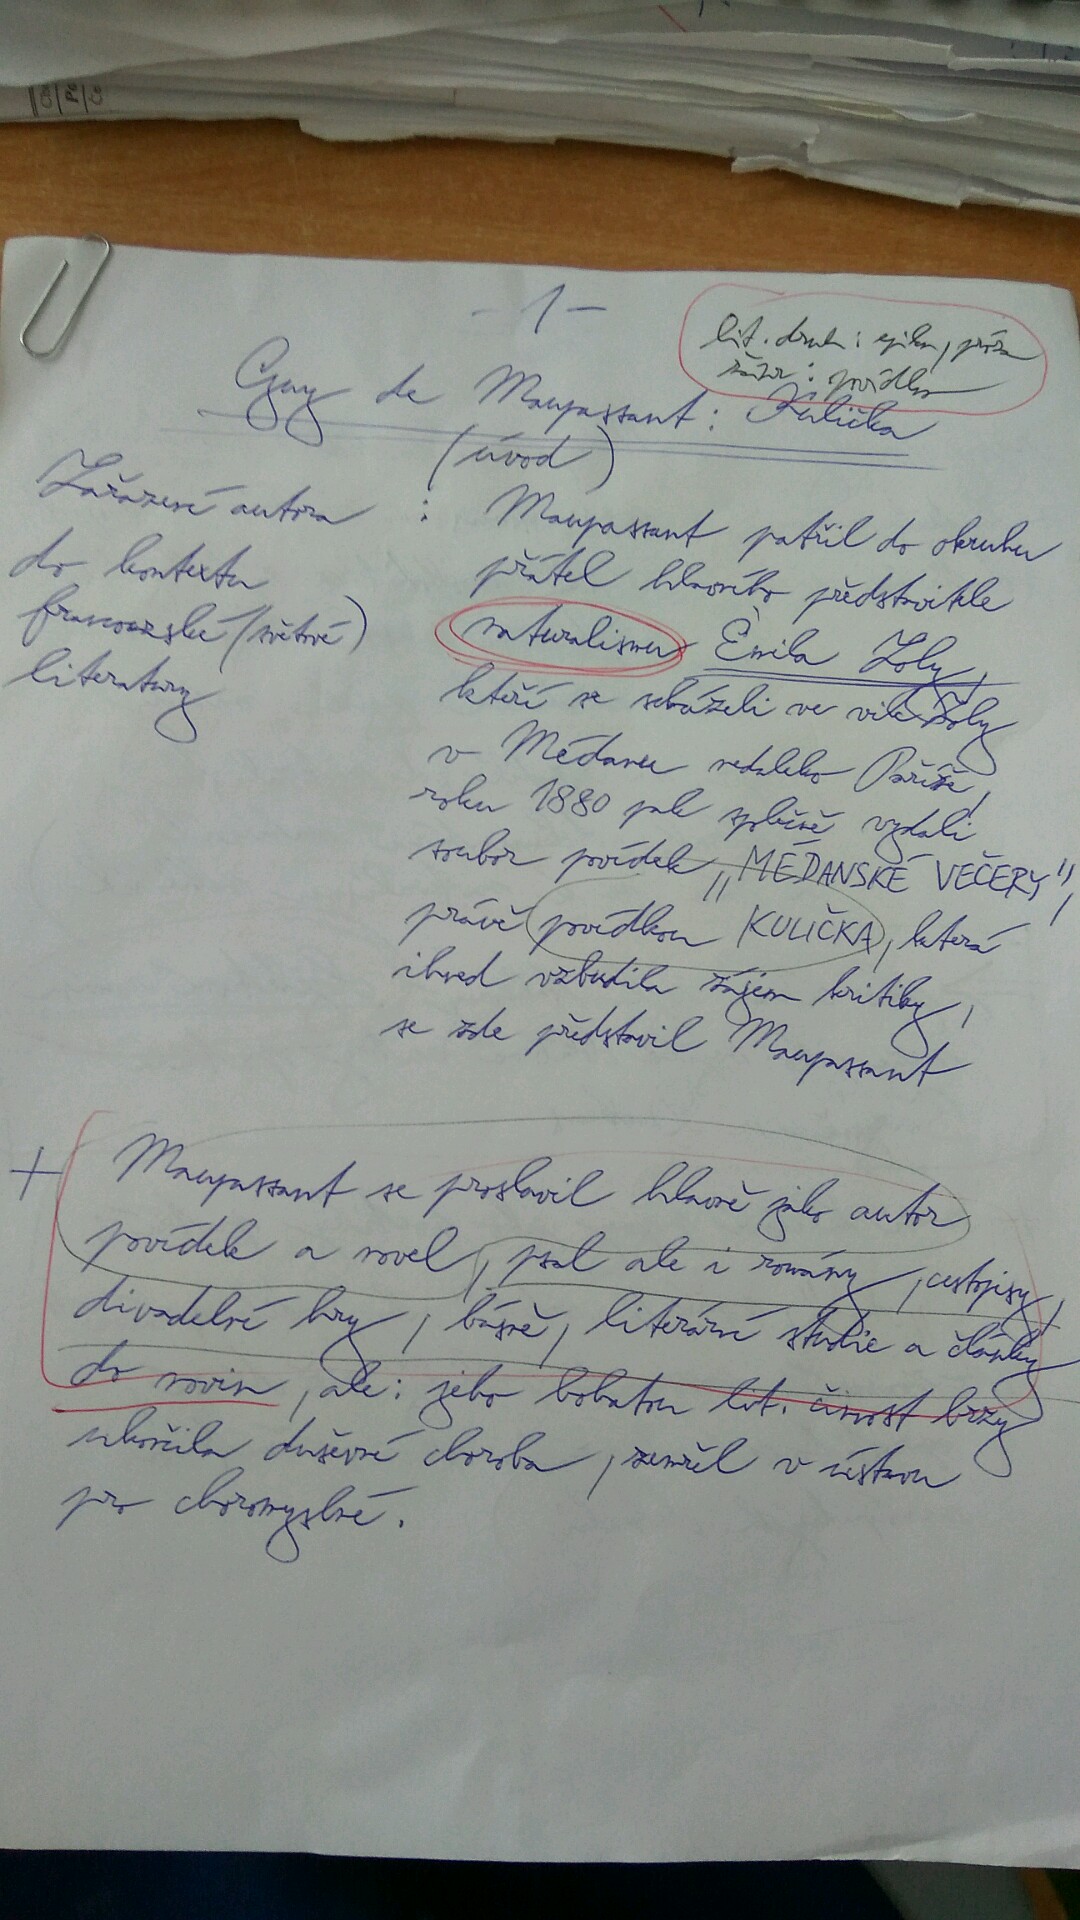 - 1 -
lit. druh: epika, próza
žánr: povídka
Guy de Maupassant: Kulička
(úvod)
Zařazení autora
do kontextu
francouzské (světové)
literatury
: Maupassant patřil do okruhu
přátel hlavního představitele
naturalismu Émila Zoly,
kteří se scházeli ve vile Zoly
v Médanu nedaleko Paříže,
roku 1880 pak společně vydali
soubor povídek „MÉDANSKÉ VEČERY",
právě povídkou KULIČKA, která
ihned vzbudila zájem kritiky,
se zde představil Maupassant
+ Maupassant se proslavil hlavně jako autor
povídek a novel, psal ale i romány, cestopisy,
divadelní hry, básně, literární studie a články
do novin, ale: jeho bohatou lit. činnost brzy
ukončila duševní choroba, zemřel v ústavu
pro choromyslné.